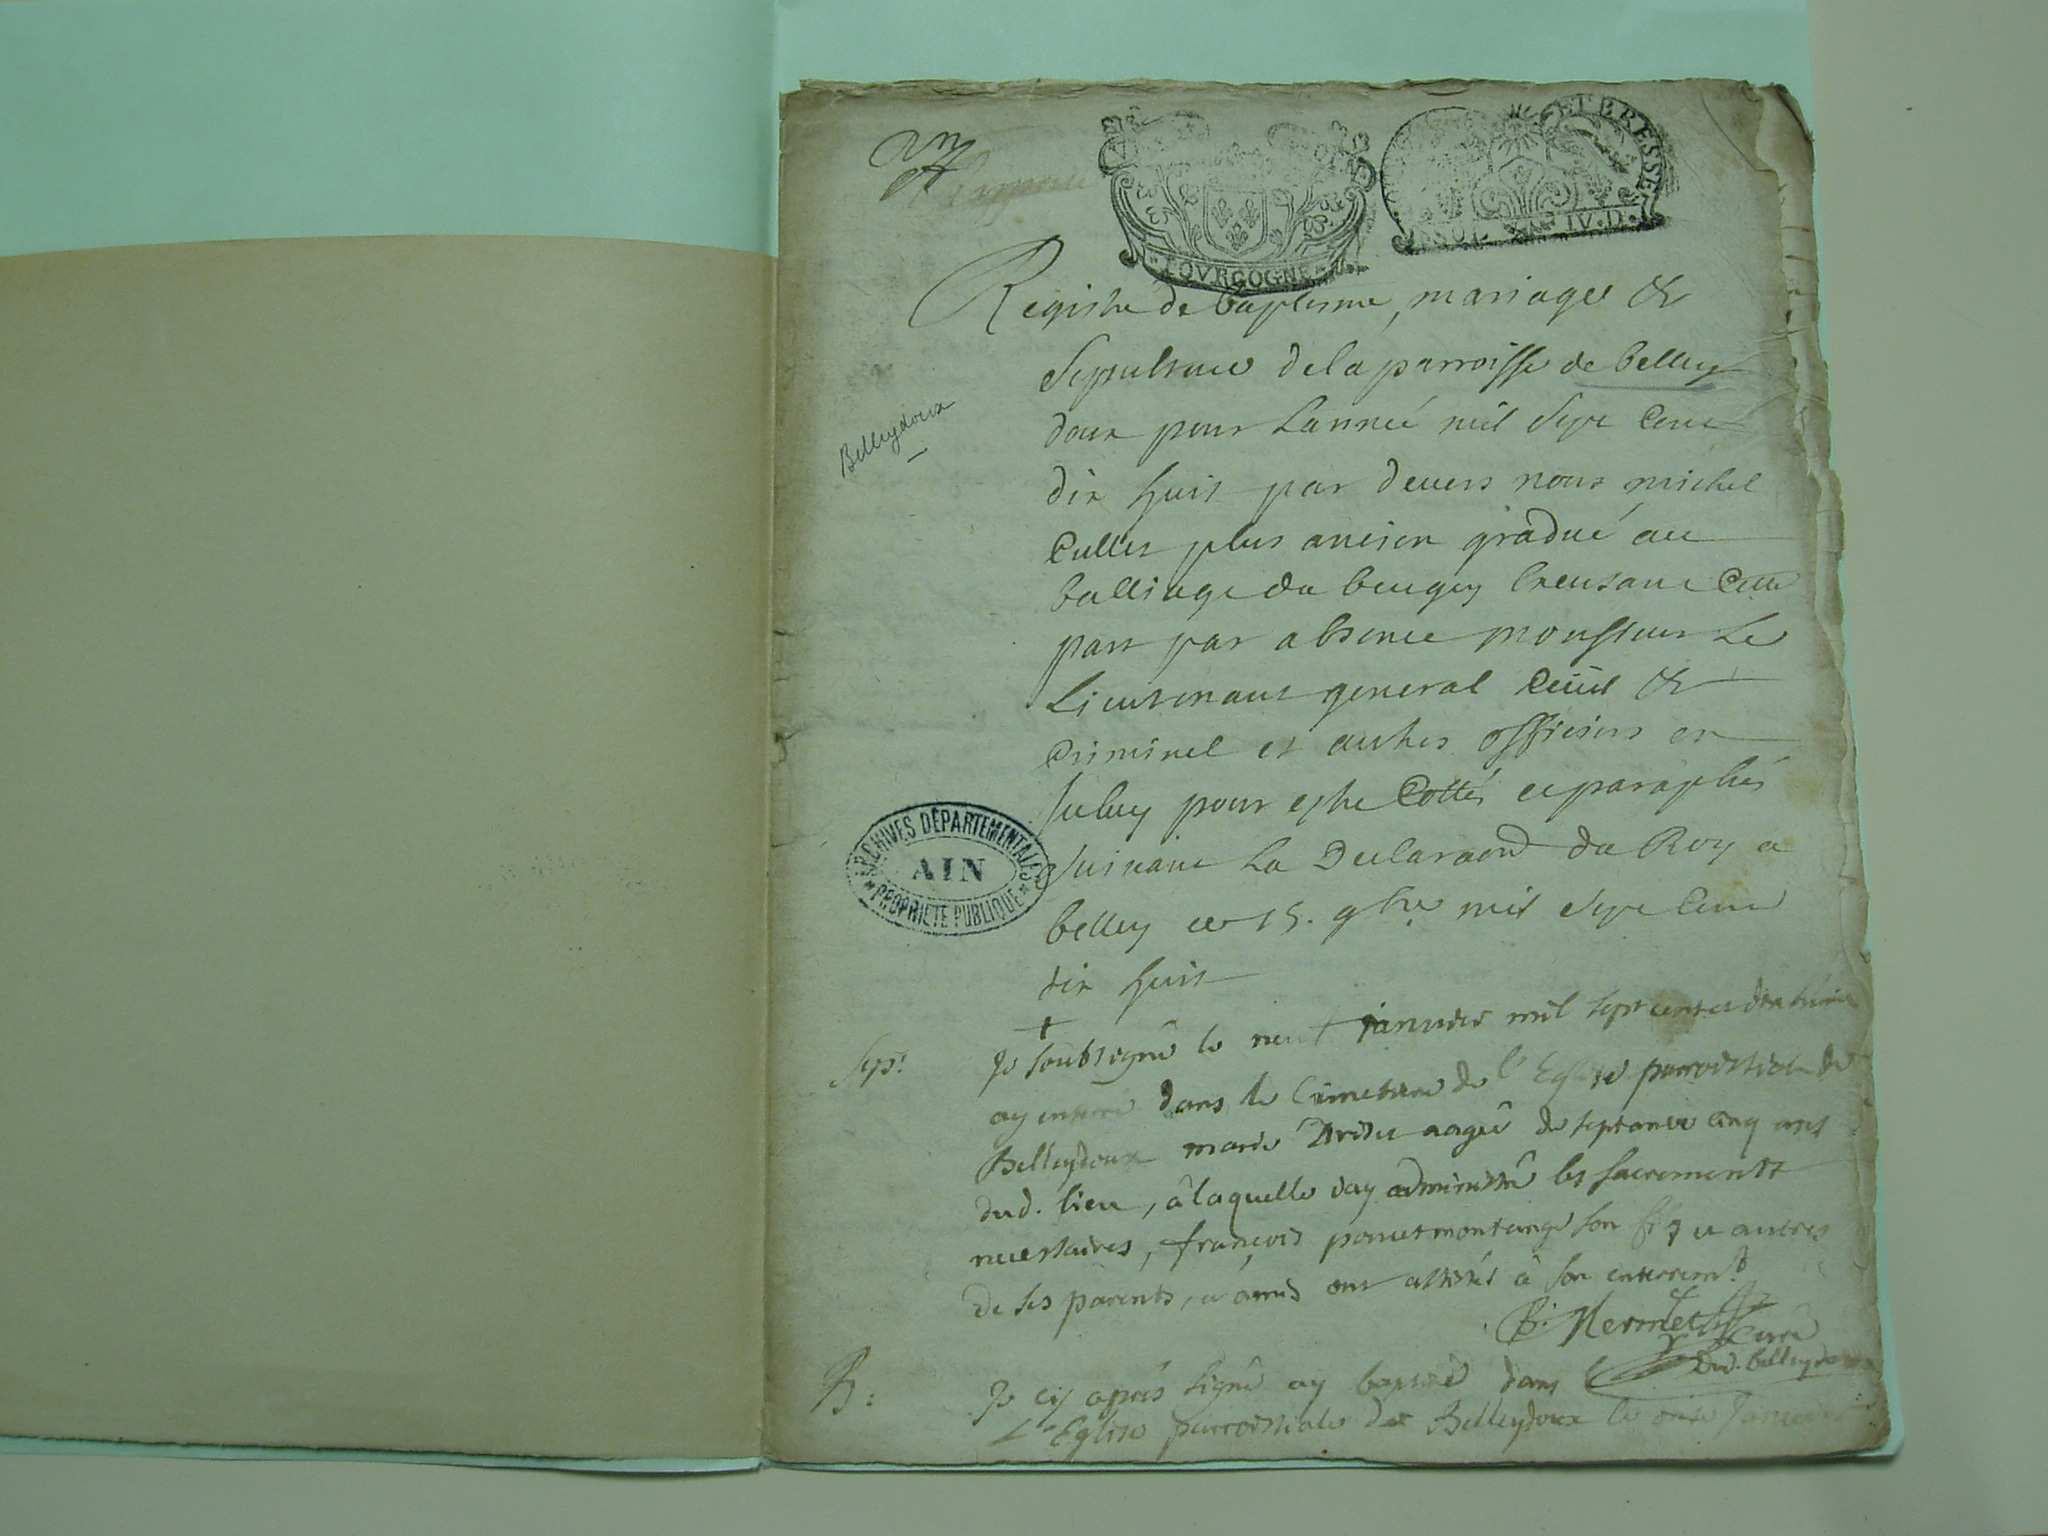 BOVRGOGNE
ET BRESSE
SOL IV. D.
Registre de baptesme, mariages &
Sepultures de la parroisse de belley
doux pour Lanneé mil sept Cent
dix huit par devers nous michel
Cullet plus ancien gradué au
balliage du beugey Creusant Cette
part par absence monsieur Le
Lieutenant general Civil &
Criminel et autres officiers en
Iceluy pour estre Cottés et paraphés
Suivant La Declaraon du Roy a
belley ce 15. 9bre mil sept Cent
dix huit
Belleydoux
ARCHIVES DÉPARTEMENTALES
AIN
PROPRIÉTÉ PUBLIQUE
Sep:
Je soubsigné le neuf janvier mil sept cents et dix huict
ay enterré dans le Cimetiere de l'Eglise parroissiale de
Belleydoux marie aagée de septante cinq ans
dud. lieu, à laquelle iay administré les sacrements
necessaires, françois ponetmontange son fils et autres
de ses parents, et amis ont assistés à son enterremt
B. Mermet Curé
Dud. belleydoux
B:
Je cy après signé ay baptizé dans
L'Eglise parroissiale de Belleydoux le onze Janvier